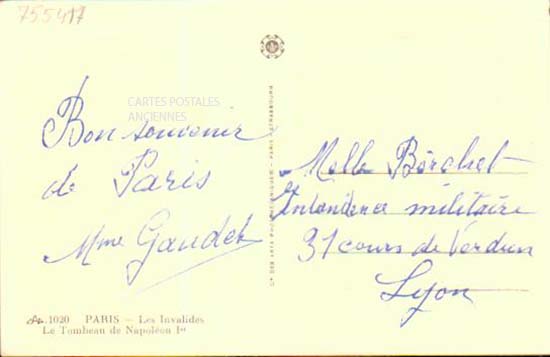 755417
CARTES POSTALES
ANCIENNES
Bon souvenir
de Paris
Mme Gaudet
Melle Borchet
Intendance militaire
31 cours de Verdun
Lyon
Cie DES ARTS PHOTOMÉCANIQUES - PARIS-STRASBOURG
1020 PARIS - Les Invalides
Le Tombeau de Napoléon Ier